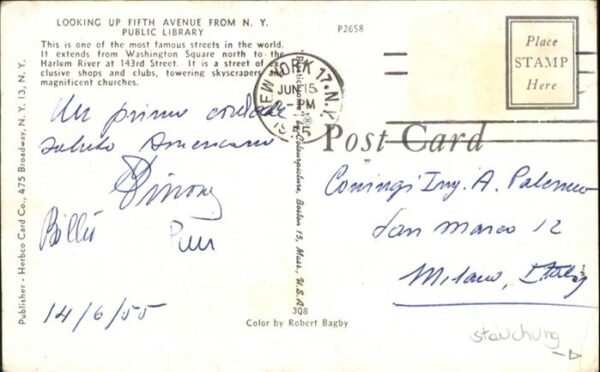 LOOKING UP FIFTH AVENUE FROM N. Y.
PUBLIC LIBRARY
This is one of the most famous streets in the world.
It extends from Washington Square north to the
Harlem River at 143rd Street. It is a street of ex-
clusive shops and clubs, towering skyscrapers and
magnificent churches.
P2658
Place
STAMP
Here
NEW YORK 17, N.Y.
JUN 15
PM
Post Card
Un primo cordiale
saluto Americano
14/6/55
Publisher - Herbco Card Co., 475 Broadway, N. Y. 13, N. Y.
"Plastichrome" by Colourpicture, Boston 15, Mass., U.S.A.
308
Color by Robert Bagby
Coniugi Ing. A. Palermo
San Marco 12
Milano, Italy
stauchung